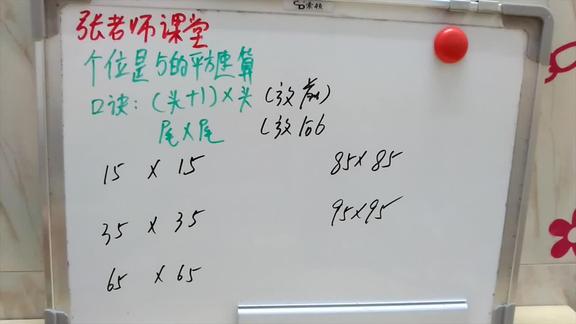 张老师课堂
个位是5的平方速算
口诀:(头+1)×头 (放前)
尾×尾 (放后
15 × 15
85×85
35 × 35
95×95
65 × 65